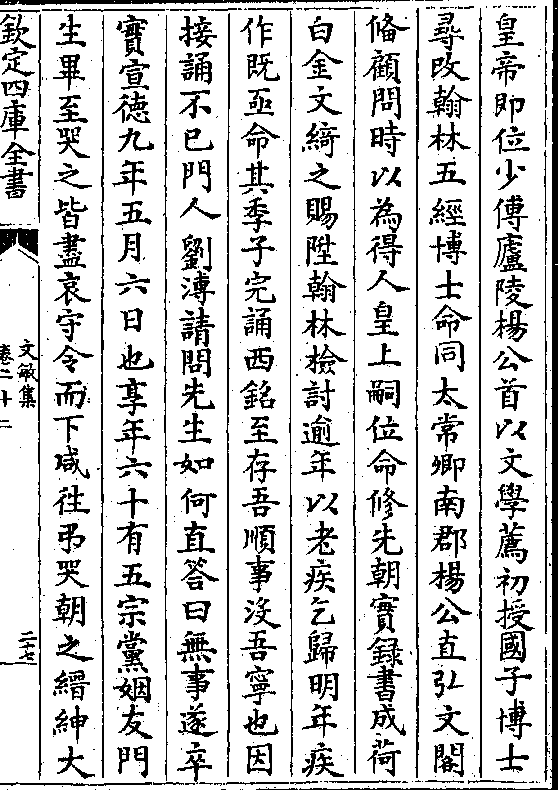 皇帝即位少傅廬陵楊公首以文學薦初授國子博士
尋改翰林五經博士命同太常卿南郡楊公直弘文閣
偹顧問時以為得人皇上嗣位命修先朝實錄書成荷
白金文綺之賜陞翰林檢討逾年以老疾乞歸明年疾
作既亟命其季子完誦西銘至存吾順事沒吾寧也因
接誦不已門人劉溥請問先生如何直答曰無事遂卒
實宣徳九年五月六日也享年六十有五宗黨姻友門
生畢至哭之皆盡哀守令而下咸徃弔哭朝之縉紳大
欽定四庫全書
文敏集
卷二十二
二十七